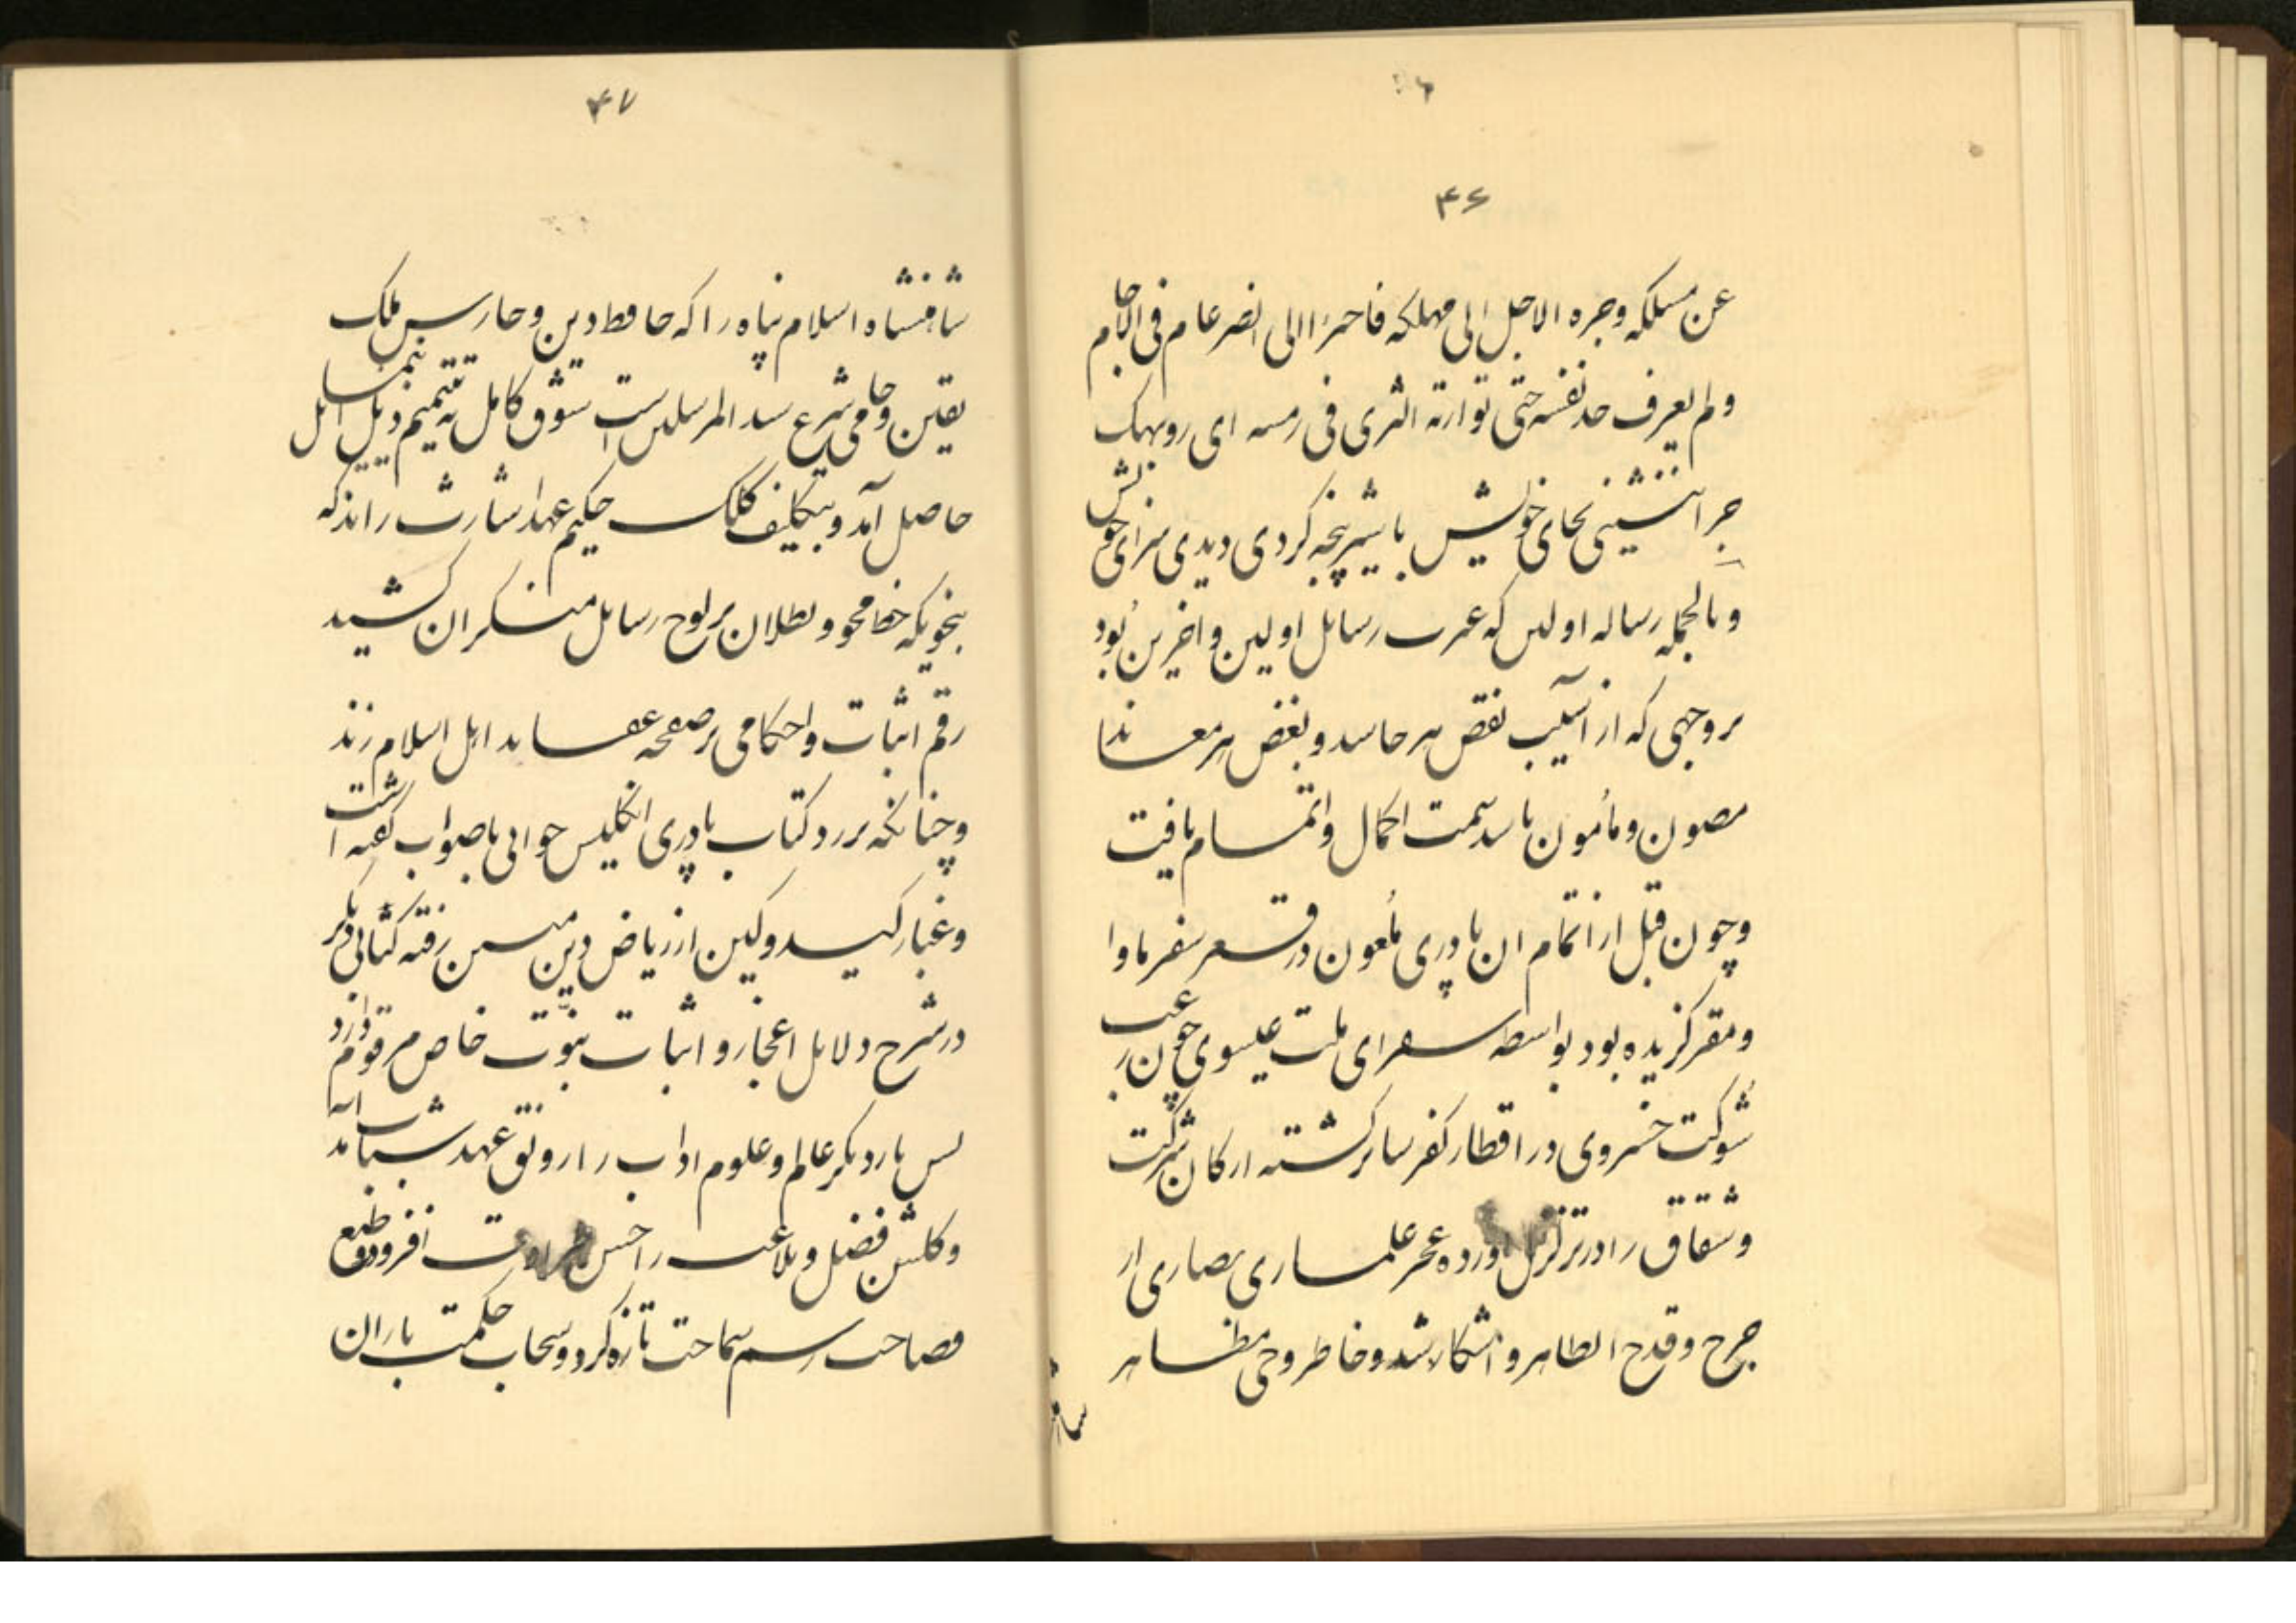 ۴۶
عن مسلکه وجره الاجل الی مهلکه فاحمرا الی الضرعام فی الاجام
ولم یعرف حد نفسه حتی توارته الثری فی رمسه ای روبهک
چرا ننشینی بجای خویش با شیر پنجه کردی دیدی سزای خویش
وبالجمله رساله اولین که عبرت رسایل اولین واخرین بود
بر وجهی که از آسیب نقص هر حاسد و بغض هر معاندا
مصون ومأمون باشد سمت اکمال واتمام یافت
وچون قبل از اتمام ان پادری ملعون در قعر سقر ماوا
ومقر گزیده بود بواسطه سفرای ملت عیسوی چون رعب
شوکت خسروی در اقطار کفر سایر گشته ارکان شرکت
وشقاق را در تزلزل اورده عجز علمای نصاری از
جرح وقدح الظاهر و اشکار شد وخاطر وحی مظاهر
۴۷
شاهنشاه اسلام پناه را که حافظ دین وحارس ملک
یقین وحامی شرع سید المرسلین است شوق کامل به تتمیم ذیل
حاصل آمد و بتکلیف کلک حکیم عهد اشارت راند که
بنحویکه خط محو وبطلان بر لوح رسایل منکران کشید
رقم اثبات واحکامی بر صفحه عقاید اهل اسلام زند
وچنانکه بر رد کتاب پادری انگلیس جوابی با صواب گفته است
وغبار کید وکین از ریاض دین مبین رفته کتابی دیگر
در شرح دلایل اعجاز و اثبات نبوت خاص مرقوم دارد
پس بار دیگر عالم وعلوم اداب را رونق عهد شباب آمد
وگلشن فضل وبلاغت را حسن طراوت افزود وطبع
فصاحت رسم سماحت تازه کرد وسحاب حکمت باران